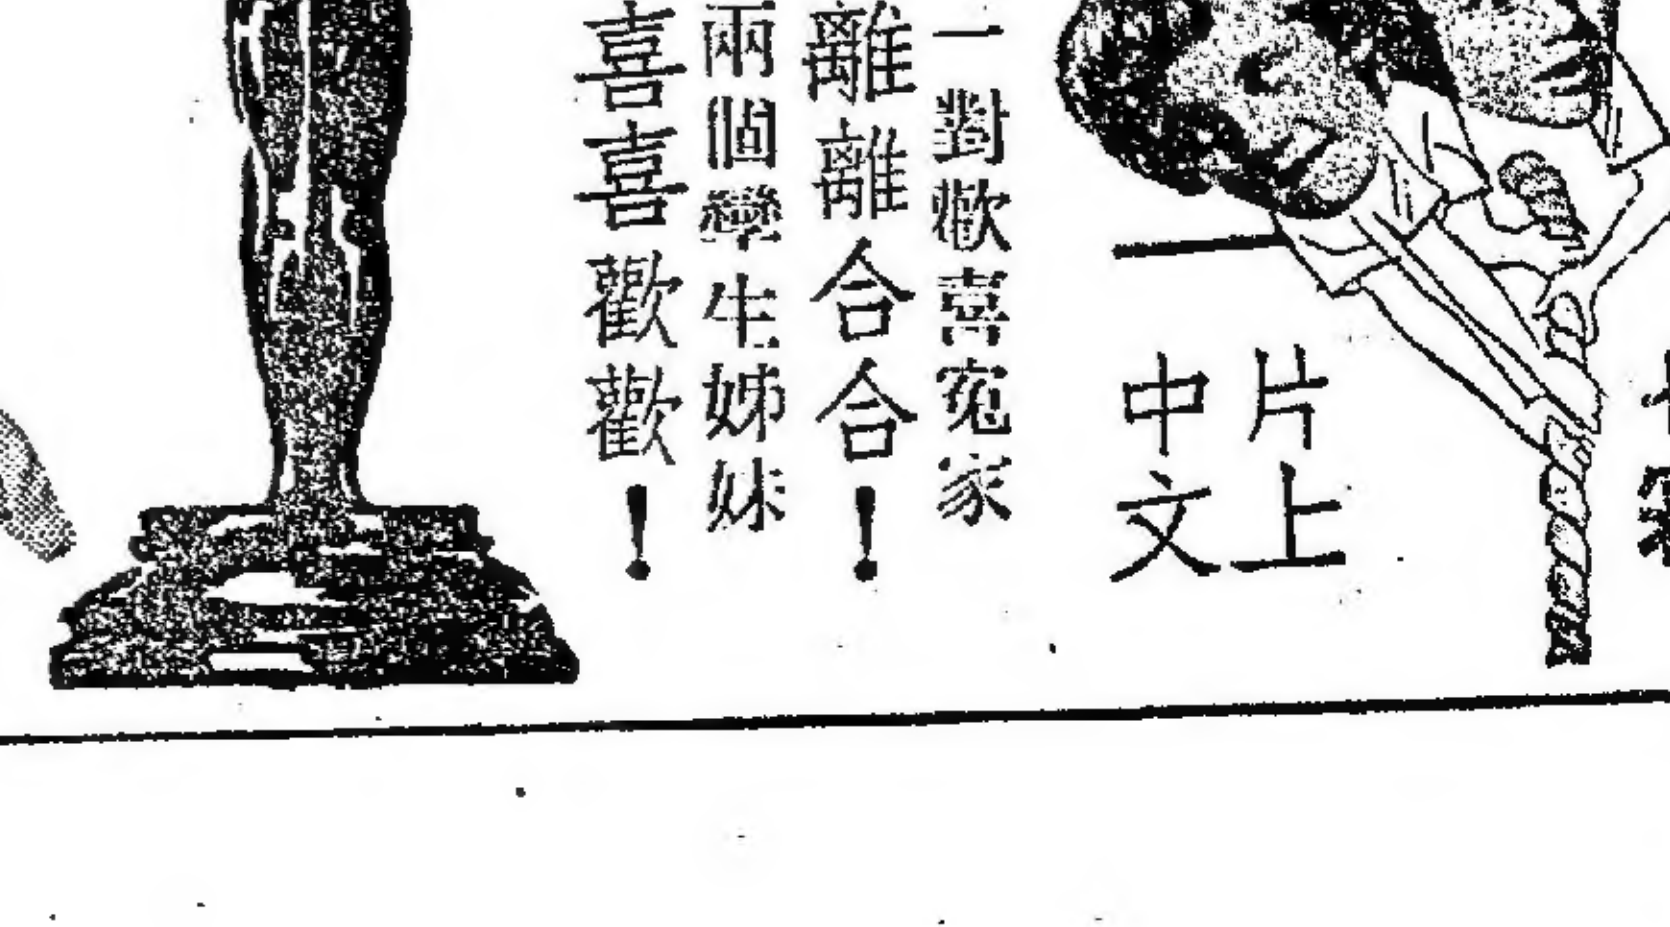 片上
中文
一對歡喜寃家
離離合合！
兩個孿生姊妹
喜喜歡歡！